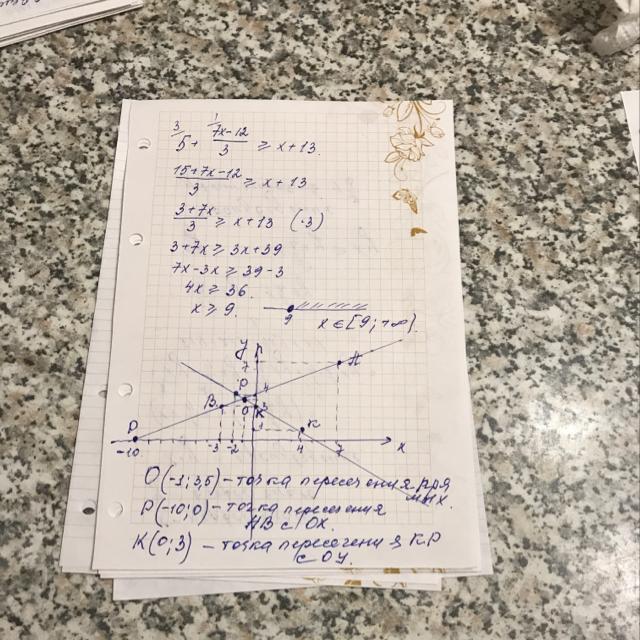 3 1
5 + 7x-12/3 ≥ x+13.
15+7x-12/3 ≥ x+13
3+7x/3 ≥ x+13 (·3)
3+7x ≥ 3x+39
7x-3x ≥ 39-3
4x ≥ 36
x ≥ 9.
9
x ∈ [9; +∞).
y
7
A
P
B
O
K
P
-10
-3
-2
4
7
x
O(-1; 3,5) - точка пересечения пря
мых.
P(-10; 0) - точка пересечения
AB с OX.
K(0; 3) - точка пересечения KP
с OY.